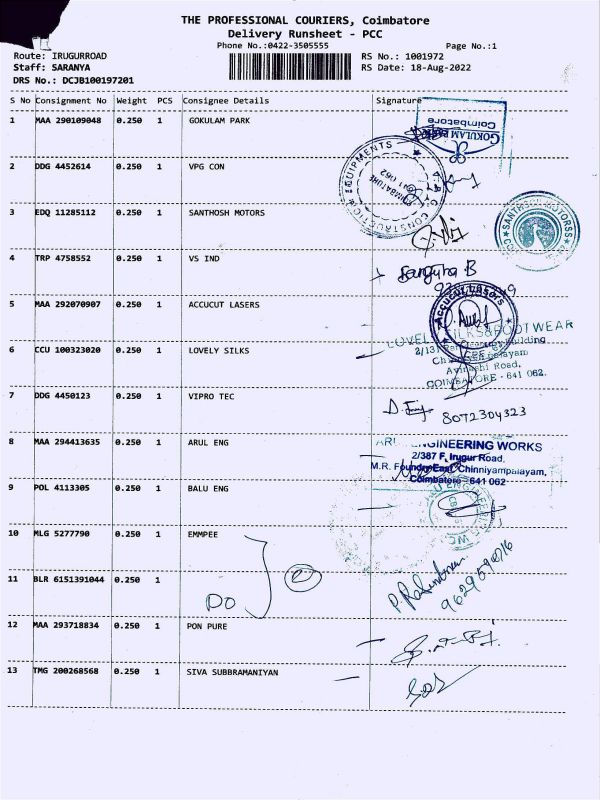 THE PROFESSIONAL COURIERS, Coimbatore
Delivery Runsheet - PCC
Phone No.:0422-3505555 Page No.:1
Route: IRUGURROAD RS No.: 1001972
Staff: SARANYA RS Date: 18-Aug-2022
DRS No.: DCJB100197201
S No Consignment No Weight PCS Consignee Details Signature
1 MAA 290109048 0.250 1 GOKULAM PARK
GOKULAM PARK
Coimbatore
2 DDG 4452614 0.250 1 VPG CON
EQUIPMENTS
COIMBATORE
641 062
CONSTRUCTION
3 EDQ 11285112 0.250 1 SANTHOSH MOTORS
SANTHOSH MOTORSS
4 TRP 4758552 0.250 1 VS IND
Sanguna B
5 MAA 292070907 0.250 1 ACCUCUT LASERS
ACCUCUT LASERS
6 CCU 100323020 0.250 1 LOVELY SILKS
LOVELY SILKS&FOOTWEAR
Avinashi Road,
COIMBATORE - 641 062.
7 DDG 4450123 0.250 1 VIPRO TEC
8072304323
8 MAA 294413635 0.250 1 ARUL ENG
ARUL ENGINEERING WORKS
2/387 F, Irugur Road,
M.R. Foundry East, Chinniyampalayam,
Coimbatore - 641 062
9 POL 4113305 0.250 1 BALU ENG
10 MLG 5277790 0.250 1 EMMPEE
11 BLR 6151391044 0.250 1
DO
12 MAA 293718834 0.250 1 PON PURE
13 TMG 200268568 0.250 1 SIVA SUBBRAMANIYAN